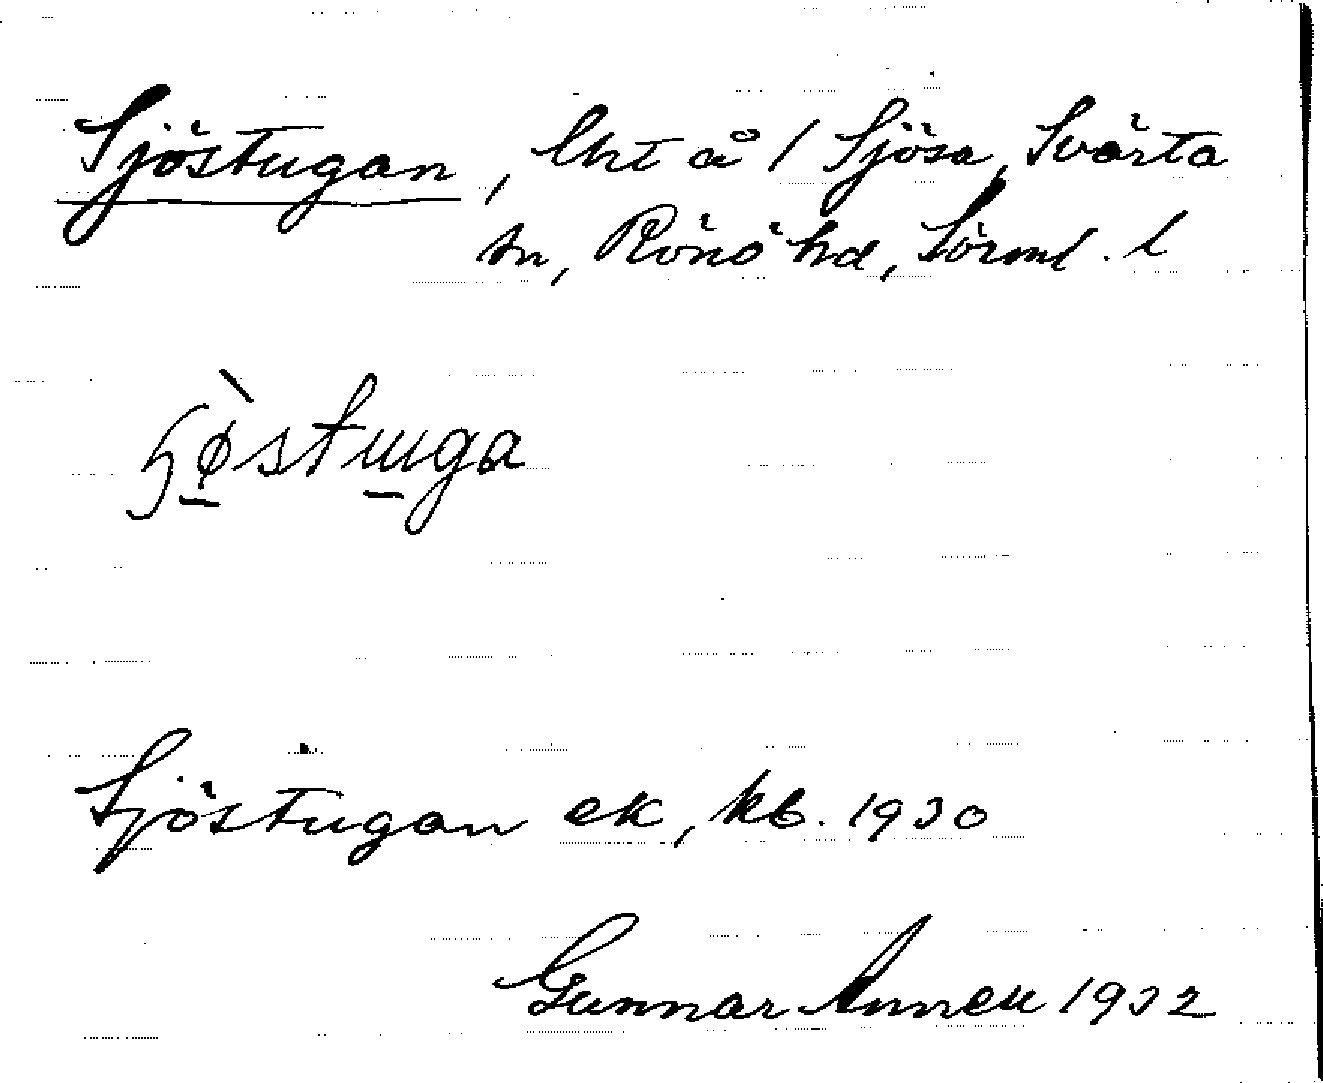 Sjöstugan, lht å 1 Sjösa, Svärta
sn, Rönö hd, Sörml. l
Sjöstugan ek, kb. 1930
Gunnar Annell 1932